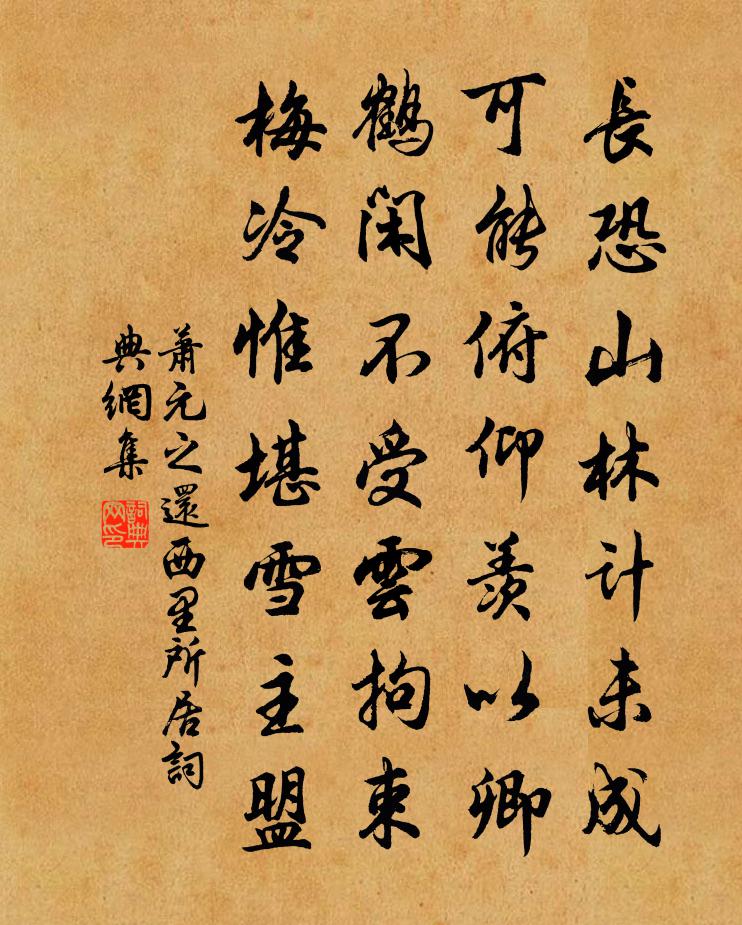 長恐山林計未成
可能俯仰羨以卿
鶴閑不受雲拘束
梅冷惟堪雪主盟
蕭元之還西里所居詞
典網集
詞典
网印